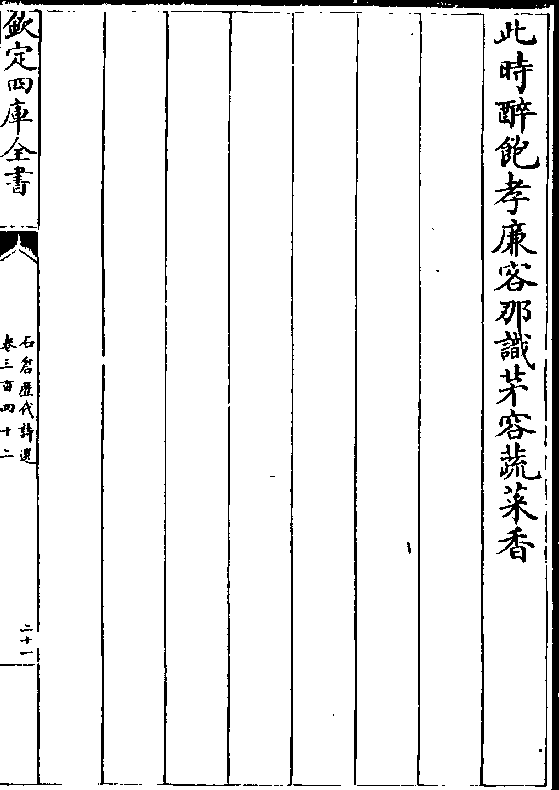 此時醉飽孝廉客那識茅容蔬菜香
欽定四庫全書
石倉歷代詩選
卷三百四十二
二十一